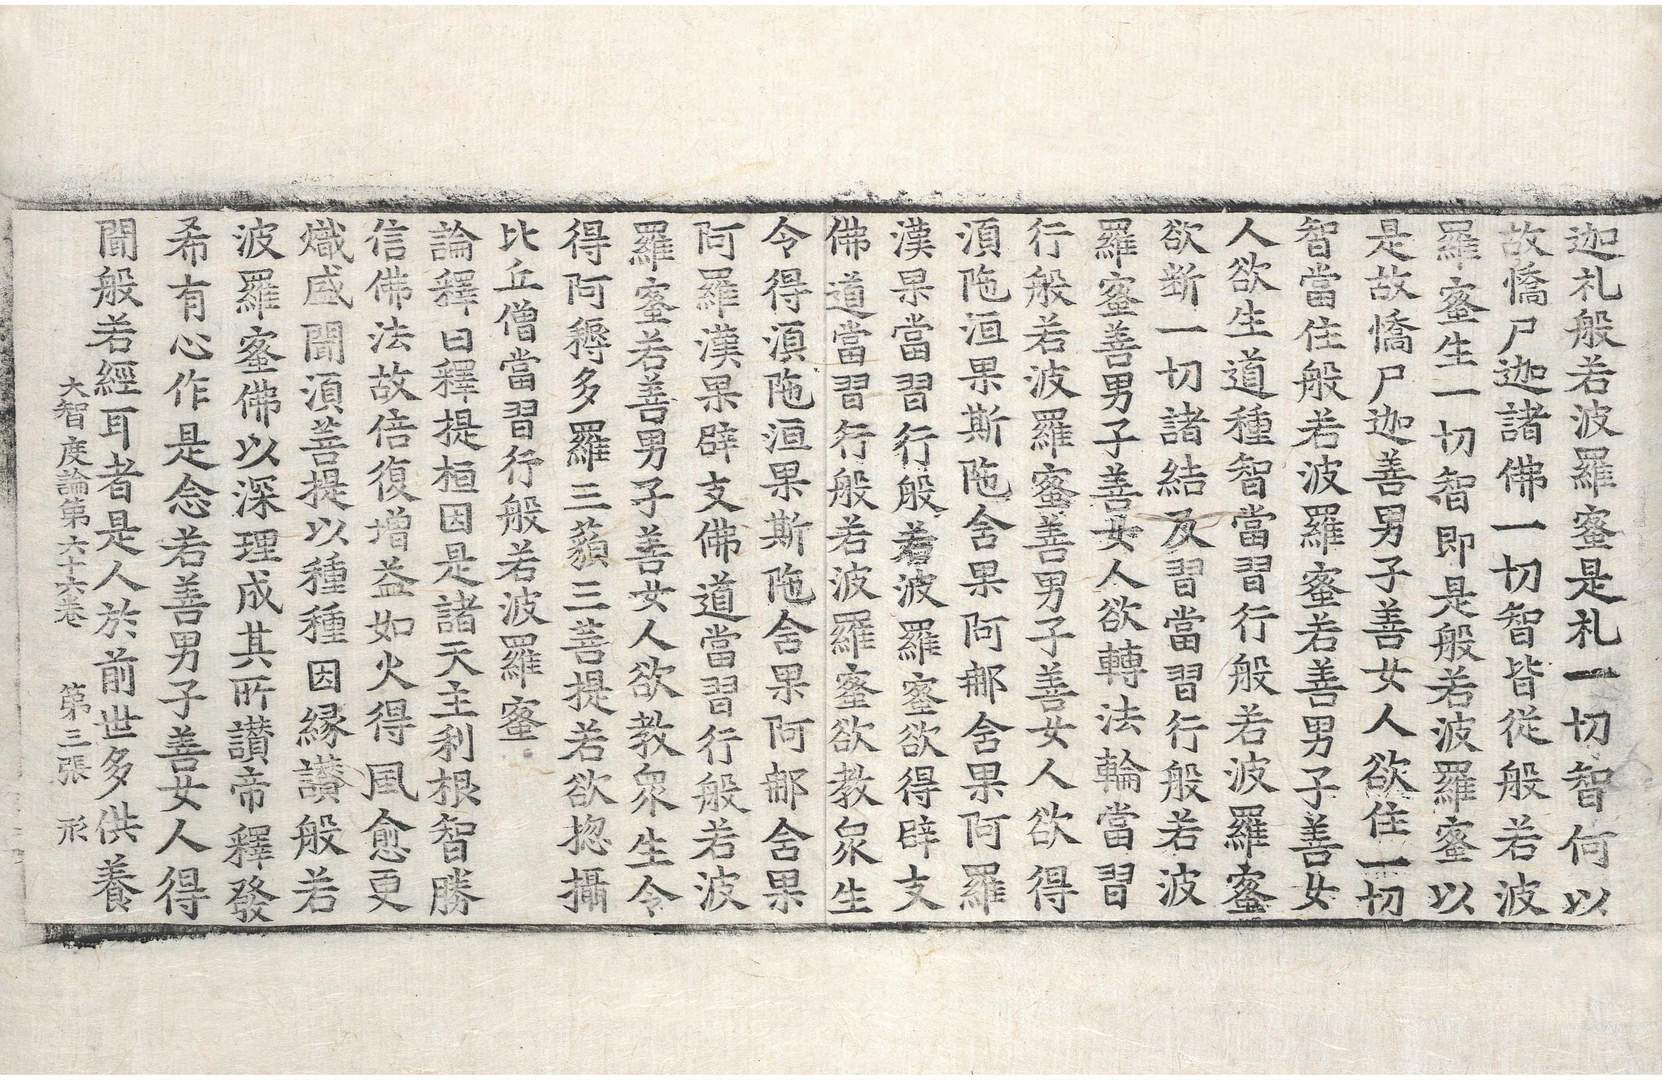 迦礼般若波羅蜜是礼一切智何以
故憍尸迦諸佛一切智皆從般若波
羅蜜生一切智即是般若波羅蜜以
是故憍尸迦善男子善女人欲住一切
智當住般若波羅蜜若善男子善女
人欲生道種智當習行般若波羅蜜
欲断一切諸結及習當習行般若波
羅蜜善男子善女人欲轉法輪當習
行般若波羅蜜善男子善女人欲得
湏陁洹果斯陁含果阿𨚗含果阿羅
漢果當習行般若波羅蜜欲得辟支
佛道當習行般若波羅蜜欲教衆生
令得湏陁洹果斯陁含果阿𨚗含果
阿羅漢果辟支佛道當習行般若波
羅蜜若善男子善女人欲教衆生令
得阿耨多羅三藐三菩提若欲揔攝
比丘僧當習行般若波羅蜜
論釋曰釋提桓因是諸天主利根智勝
信佛法故倍復增益如火得風愈更
熾盛聞湏菩提以種種因緣讃般若
波羅蜜佛以深理成其所讃帝釋發
希有心作是念若善男子善女人得
聞般若經耳者是人於前世多供養
大智度論第六十六卷　第三張　形